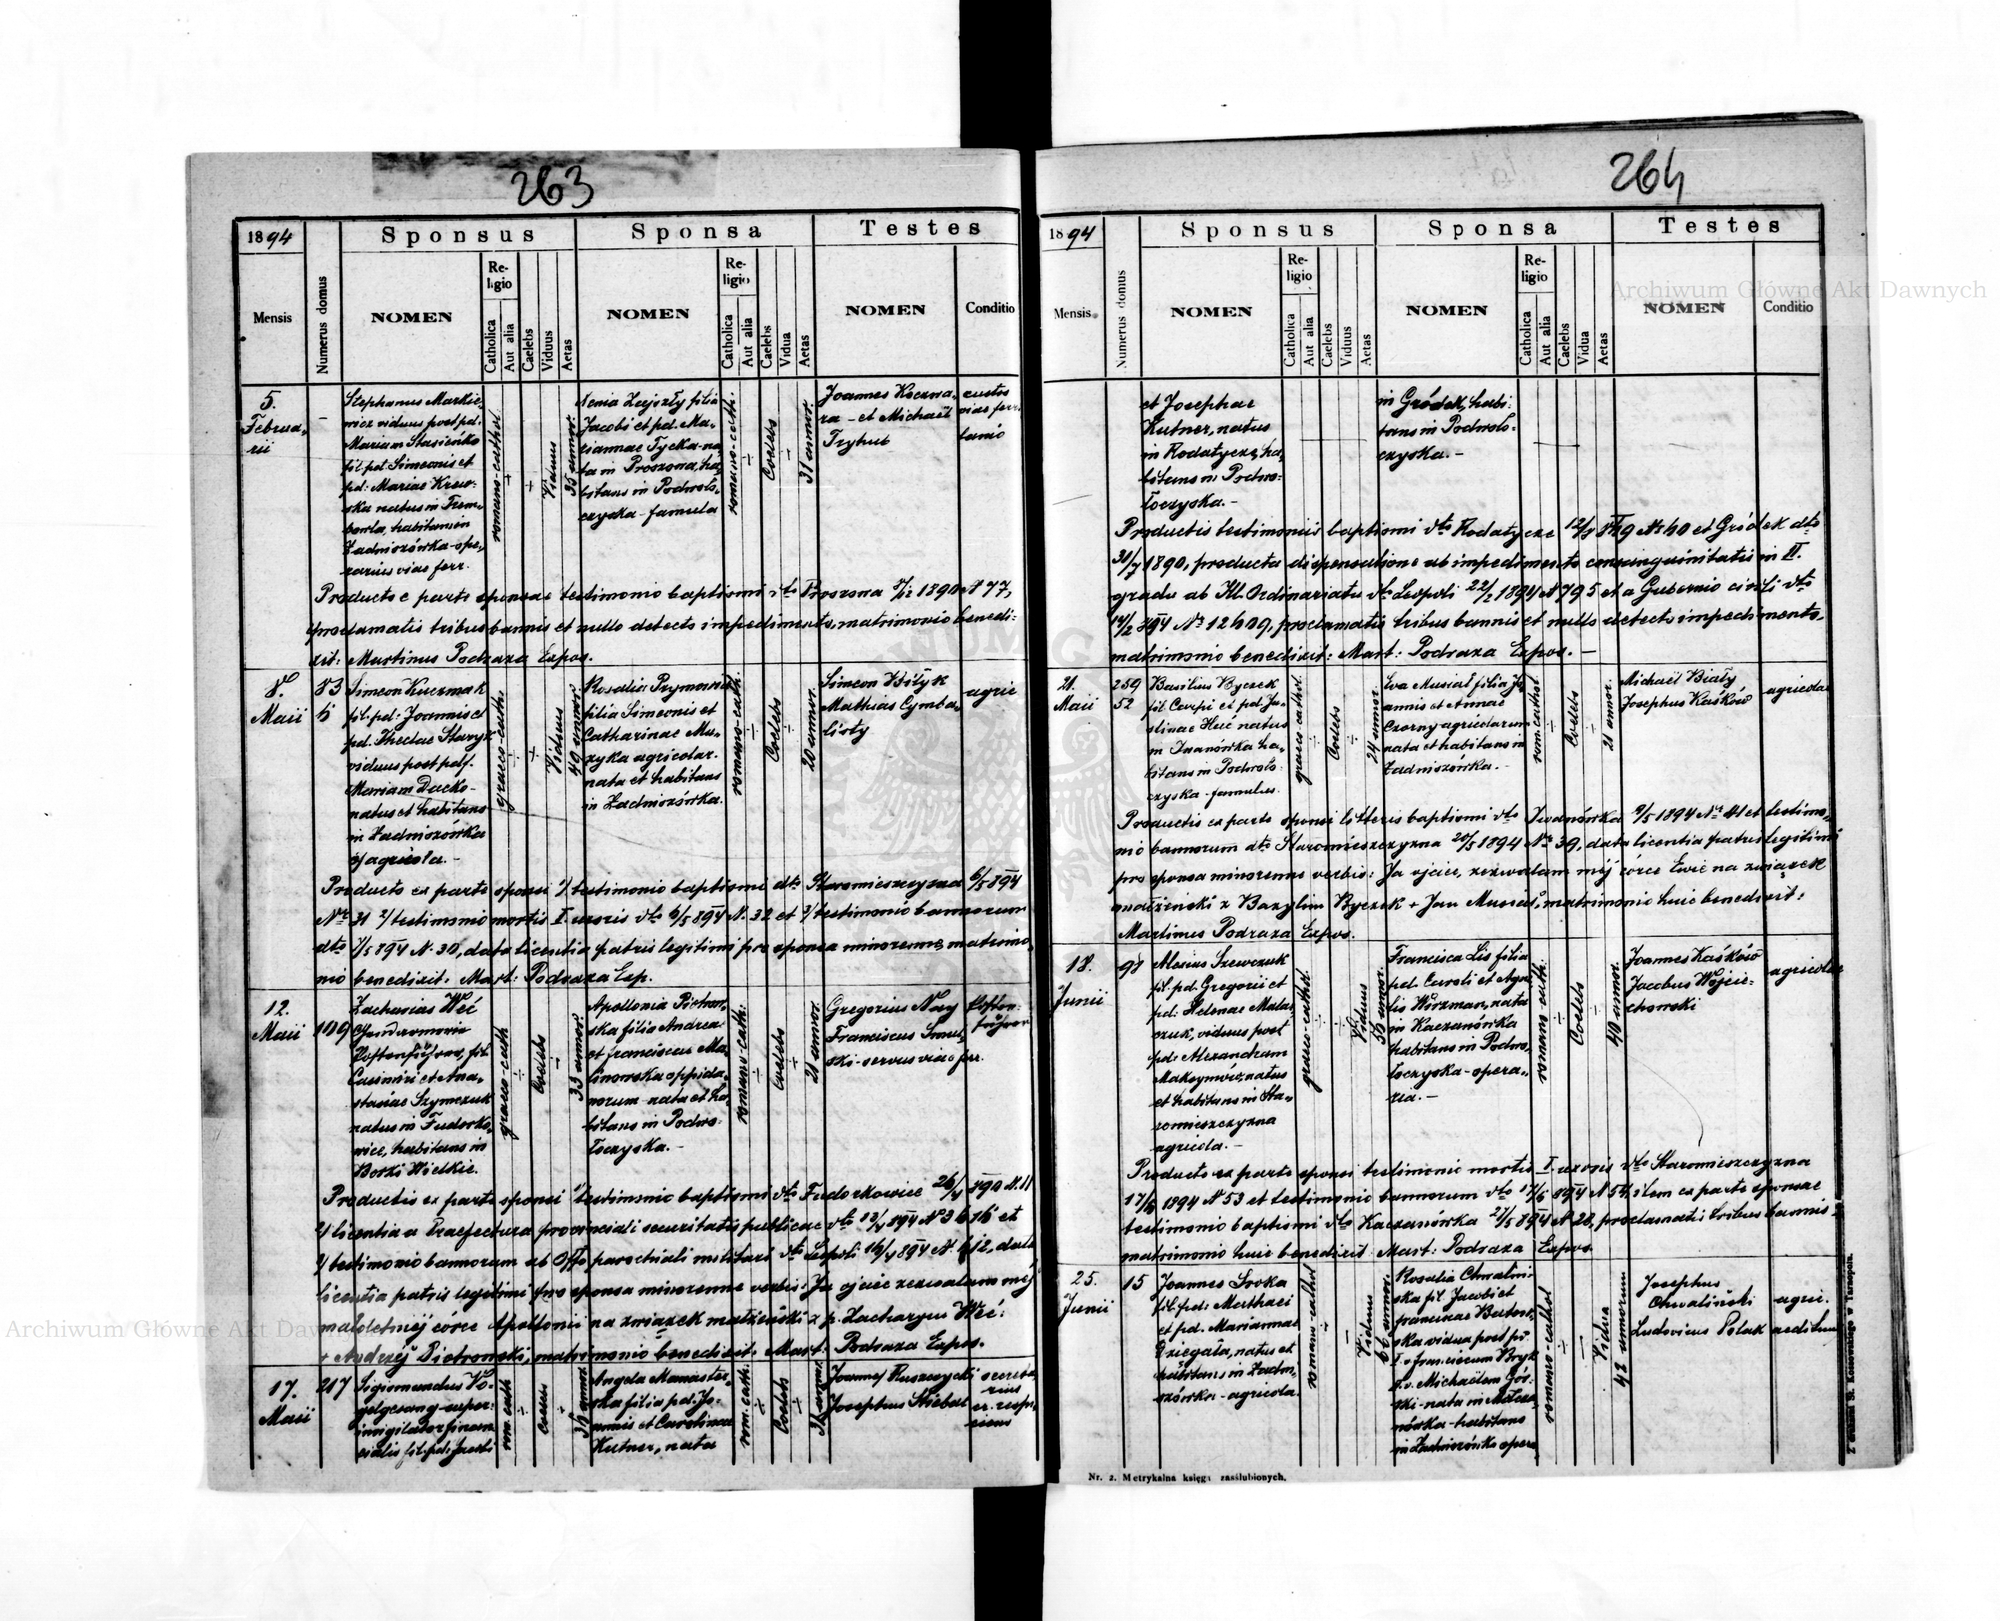 263
1894
Sponsus
Sponsa
Testes
Mensis
Numerus domus
NOMEN
Religio
Catholica
Aut alia
Caelebs
Viduus
Aetas
NOMEN
Religio
Catholica
Aut alia
Caelebs
Vidua
Aetas
NOMEN
Conditio
5.
Februa-
rii
Stephanus Markie-
wicz viduus post pd.
Mariam Stasieńko
fil. pd. Simeonis et
pd. Mariae Krew-
ska natus in Trem-
bowla, habitans in
Zadniszówka - ope-
rarius viae ferr.
romano-cathol
Viduus
35 annor.
Jacobi et pd. Ma-
riannae Tycka - na-
ta in Proszowa, ha-
bitans in Podwoło-
czyska - famula
romano-cath.
Coelebs
31 annor.
Joannes Koczwa-
ra - et Michaël
Trybus
custos
viae ferr.
Producto e parte sponsae testimonio baptismi dto Proszowa 1890 N 77,
proclamatis tribus bannis et nullo detecto impedimento, matrimonio benedi-
xit: Martinus Podraza Expos.
8.
Maii
83
5
Simeon Kuczmak
fil. pd. Joannis et
pd. Theclae Staryk
viduus post pdf.
Mariam Dacko -
natus et habitans
in Zadniszówka
agricola. -
graeco-cath.
Viduus
49 annor.
Rosalia Prymowicz
filia Simeonis et
Catharinae Mu-
zyka agricolar.
nata et habitans
in Zadniszówka.
romano-cath.
Coelebs
20 annor.
Simeon Biłyk
Mathias Cymba-
listy
agric
Producto ex parte sponsi 1/ testimonio baptismi dto Staromieszczyzna 6/5 894
Nr 31 2/ testimonio mortis I. uxoris dto 6/5 894 N. 32 et 3/ testimonio bannorum
dto 7/5 894 N. 30, data licentia patris legitimi pro sponsa minorenne, matrimo-
nio benedixit. Mart: Podraza Exp.
12.
Maii
109
Zacharias Weć
Gendarmerie
Postenführer, fil.
Casimiri et Ana-
stasiae Szymczuk
natus in Fudorko-
wice, habitans in
Borki Wielkie.
graeco-cath
Coelebs
33 annor.
Apollonia Pietrow-
ska filia Andreae
et Franciscae Ma-
linowska oppida-
norum - nata et ha-
bitans in Podwo-
łoczyska. -
romano-cath.
Coelebs
21 annor.
Gregorius Nay
Franciscus Smul-
ski - servus viae ferr.
Posten-
führer
Productis ex parte sponsi 1/ testimonio baptismi dto Fudorkowice 26/4 890 N. 11
2/ licentia a Praefectura provinciali securitatis publicae dto 12/4 894 N 3616 et
3/ testimonio bannorum ab Offo parochiali militari dto Leopoli 16/4 894 N. 612, data
licentia patris legitimi pro sponsa minorenne verbis: Ja ojciec zezwalam méj
małoletniéj córce Apolonii na związek małżeński z p. Zacharym Weć:
+ Andrzéj Pietrowski, matrimonio benedixit. Mart: Podraza Expos.
17.
Maii
217
Sigismundus Vo-
gelgesang - super-
invigilator finan-
cialis fil. pd. Jacobi
rom. cath
Coelebs
35 annor.
Angela Manaster-
ska filia pd. Jo-
annis et Carolinae
Kutner, nata
rom. cath.
Coelebs
Joannes Ruszczycki
Josephus Stiebal
secreta-
rius
er. respi-
ciens
264
1894
Sponsus
Sponsa
Testes
Mensis
Numerus domus
NOMEN
Religio
Catholica
Aut alia
Caelebs
Viduus
Aetas
NOMEN
Religio
Catholica
Aut alia
Caelebs
Vidua
Aetas
NOMEN
Conditio
et Josephae
Kutner, natus
in Rodatycze, ha-
bitans in Podwo-
łoczyska. -
in Gródek, habi-
tans in Podwoło-
czyska. -
Productis testimoniis baptismi dto Rodatycze 849 Nr 40 et Gródek dto
31/7 1890, producta dispensatione ab impedimento consanguinitatis in II.
gradu ab Ill. Ordinariatu dto Leopoli 22/2 1894 N 795 et a Gubernio civili dto
14/2 894 Nr 12409, proclamatis tribus bannis et nullo detecto impedimento,
matrimonio benedixit: Mart: Podraza Expos. -
21.
Maii
259
52
Basilius Byczek
fil. Carpi et pd. Ju-
stinae Huć natus
in Iwanówka ha-
bitans in Podwoło-
czyska - famulus.
graeco-cathol.
Coelebs
24 annor.
Eva Musiał filia Jo-
annis et Annae
Czerny agricolarum
nata et habitans in
Zadniszówka. -
rom. cathol.
Coelebs
21 annor.
Michaël Biały
Josephus Kaśków
agricolae
Productis ex parte sponsi litteris baptismi dto Iwanówka 9/5 1894 Nr 41 et testimo-
nio bannorum dto Staromieszczyzna 20/5 1894 Nr 39, data licentia patris legitimi
pro sponsa minorenne verbis: Ja ojciec, zezwalam méj córce Ewie na związek
małżeński z Bazylim Byczek + Jan Musiał, matrimonio huic benedixit:
Martinus Podraza Expos.
18.
Junii
98
Alexius Szewczuk
fil. pd. Gregorii et
pd. Helenae Mala-
czuk, viduus post
pd. Alexandram
Maksymów, natus
et habitans in Sta-
romieszczyzna
agricola. -
graeco-cathol.
Viduus
Francisca Lis filia
pd. Caroli et Agne-
tis Wirzman, nata
in Kaczanówka
habitans in Podwo-
łoczyska - opera-
ria. -
romano cath.
Coelebs
40 annor.
Joannes Kaśków
Jacobus Wojcie-
chowski
agricolae
Producto ex parte sponsi testimonio mortis I uxoris dto Staromieszczyzna
17/6 1894 N 53 et testimonio bannorum dto 17/6 894 N 54, item ex parte sponsae
testimonio baptismi dto Kaczanówka 27/5 894 N 28, proclamatis tribus bannis
matrimonio huic benedixit: Mart: Podraza Expos.
25.
Junii
15
Joannes Sroka
fil. pd. Matthaei
et pd. Mariannae
Dziegała, natus et
habitans in Zadni-
szówka - agricola.
romano-cathol
Viduus
Rosalia Chwaliń-
ska fil. Jacobi et
Franciscae Butow-
ska vidua post pd.
I. v. Franciscum Bryk
II. v. Michaëlem Gór-
ski - nata in
nówka - habitans
in Zadniszówka opera
romano-cathol
Vidua
42 annorum
Josephus
Chwaliński
Ludovicus Polak
agric.
aedituus
Nr. 2. Metrykalna księga zaślubionych.
Z drukarni St. Kossowskiego w Tarnopolu.
Archiwum Główne Akt Dawnych
Archiwum Główne Akt Dawnych